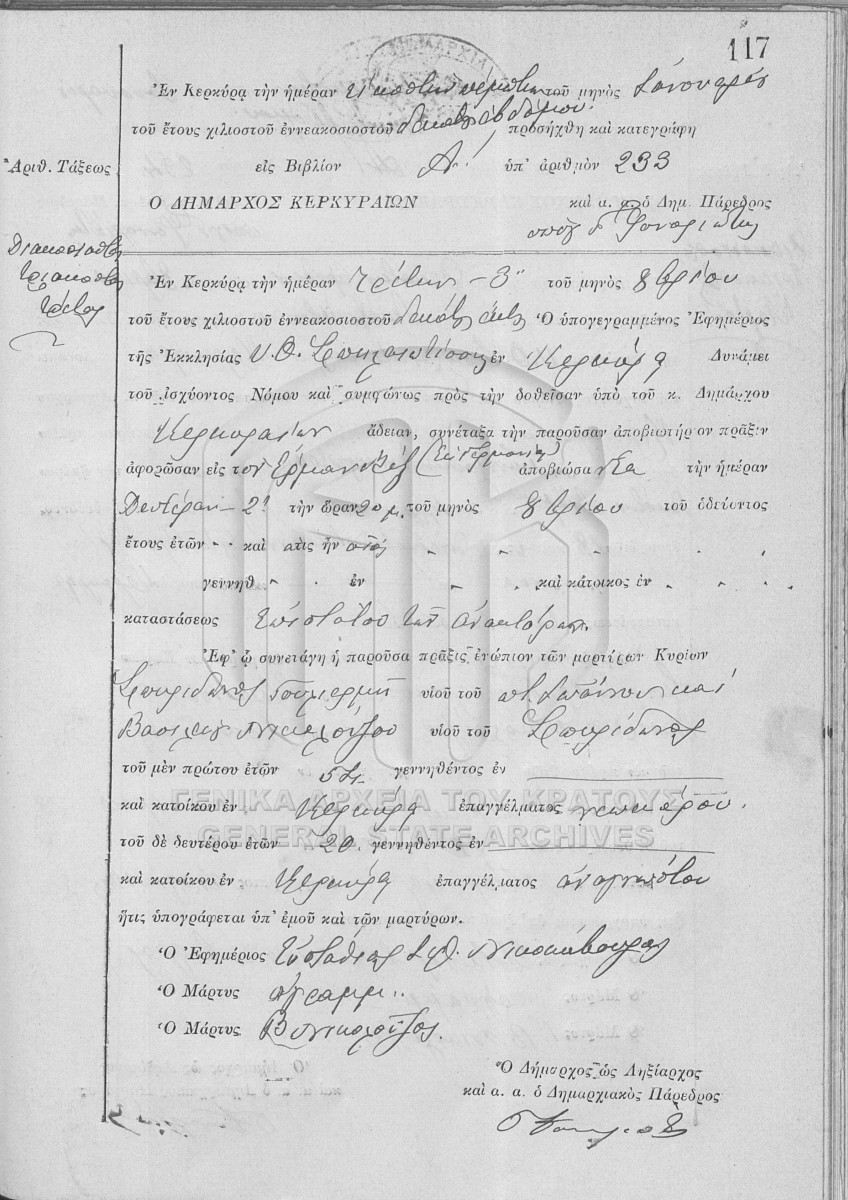 117
Ἐν Κερκύρᾳ τὴν ἡμέραν εἰκοστὴν πέμπτην τοῦ μηνὸς Ἰανουαρίου
τοῦ ἔτους χιλιοστοῦ ἐννεακοσιοστοῦ δεκάτου ἑβδόμου προσήχθη καὶ κατεγράφη
Ἀριθ. Τάξεως
εἰς Βιβλίον Α' ὑπ' ἀριθμὸν 233
Ο ΔΗΜΑΡΧΟΣ ΚΕΡΚΥΡΑΙΩΝ
καὶ α. α. ὁ Δημ. Πάρεδρος
Διακοσιοστὸς
τριακοστὸς
τρίτος
Ἐν Κερκύρᾳ τὴν ἡμέραν τρίτην - 3 τοῦ μηνὸς 8βρίου
τοῦ ἔτους χιλιοστοῦ ἐννεακοσιοστοῦ δεκάτου ἕκτου Ὁ ὑπογεγραμμένος Ἐφημέριος
τῆς Ἐκκλησίας Υ. Θ. Σπηλαιωτίσσης ἐν Κερκύρᾳ Δυνάμει
τοῦ ἰσχύοντος Νόμου καὶ συμφώνως πρὸς τὴν δοθεῖσαν ὑπὸ τοῦ κ. Δημάρχου
Κερκυραίων ἄδειαν, συνέταξα τὴν παροῦσαν ἀποβιωτήριον πρᾶξιν
ἀφορῶσαν εἰς τὸν Ἑρμαν (ἐκ Γερμανίας) ἀποβιώσαντα τὴν ἡμέραν
Δευτέραν - 2 τὴν ὥραν τοῦ μηνὸς 8βρίου τοῦ ὁδεύοντος
ἔτους ἐτῶν " " καὶ ὅτις ἦν
γεννηθ " " ἐν " " καὶ κάτοικος ἐν " "
καταστάσεως ἐπιστάτου τῶν ἀνακτόρων.
Ἐφ' ᾧ συνετάγη ἡ παροῦσα πρᾶξις ἐνώπιον τῶν μαρτύρων Κυρίων
Σπυρίδωνος υἱοῦ τοῦ καὶ
Βασιλείου Νικολούζου υἱοῦ τοῦ Σπυρίδωνος
τοῦ μὲν πρώτου ἐτῶν γεννηθέντος ἐν
καὶ κατοίκου ἐν Κερκύρᾳ ἐπαγγέλματος νεωκόρου.
ΓΕΝΙΚΑ ΑΡΧΕΙΑ ΤΟΥ ΚΡΑΤΟΥΣ
GENERAL STATE ARCHIVES
τοῦ δὲ δευτέρου ἐτῶν 20 γεννηθέντος ἐν
καὶ κατοίκου ἐν Κερκύρᾳ ἐπαγγέλματος ἀναγνώστου
ἥτις ὑπογράφεται ὑπ' ἐμοῦ καὶ τῶν μαρτύρων.
Ὁ Ἐφημέριος Εὐστάθιος
Ὁ Μάρτυς ἀγράμμ..
Ὁ Μάρτυς Β Νικολούζος.
Ὁ Δήμαρχος ὡς Ληξίαρχος
καὶ α. α. ὁ Δημαρχιακὸς Πάρεδρος